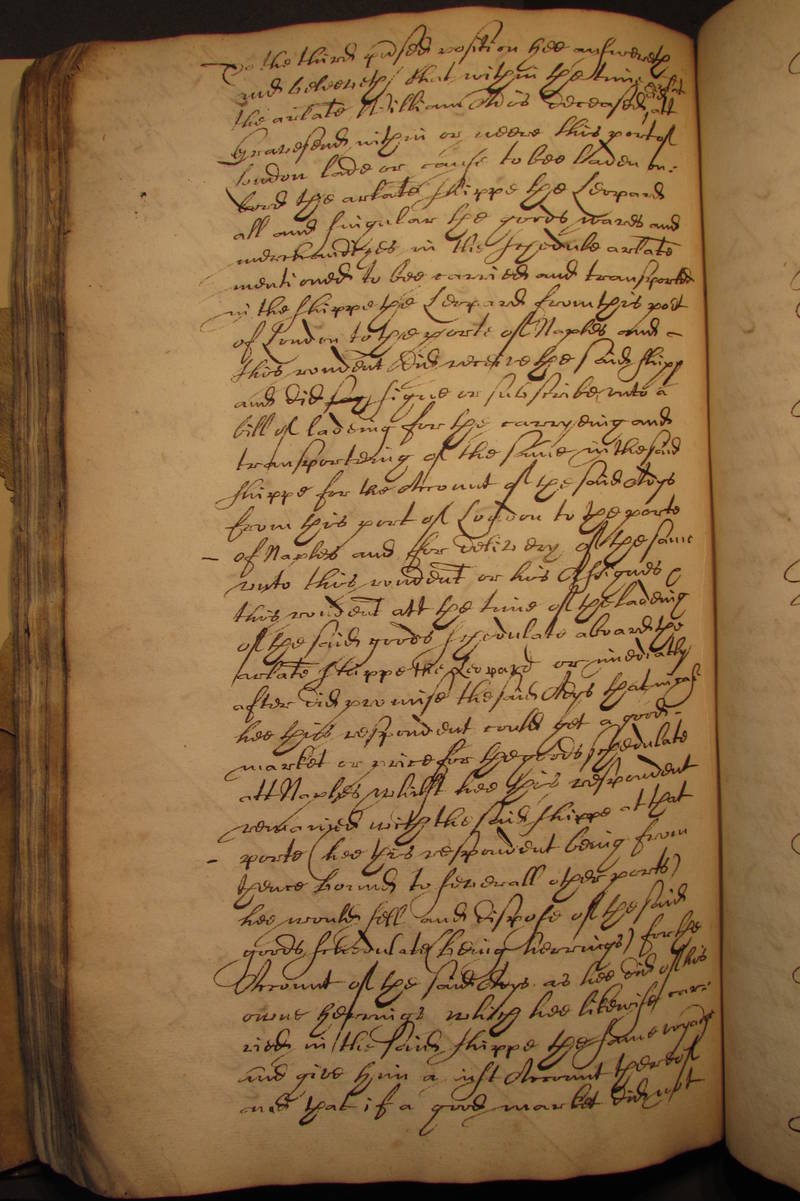 To the third p'sed position hee answereth
and beleeveth that within the time arlate
the arlate William Adis deceased did att
Gravesend within or neere this port of
London lade or cause to bee laden on:
bord the arlate shippe the Leopard
all and singular the goods wares and
merchandizes in the schedule arlate
mentioned to bee carried and transported
in the shippe the Leopard from this port
of London to the porte of Naples and -
this rondent did receive the said shipp
and did signe or subscribe unto a
bill of ladeing for the carryeing and
transporteing of the same in the said
shippe for the Account of the said Adys
from this port of London to the porte
- of Naples and for delivery of the same
unto this rondent or his Assignes
this rondent att the time of the ladeing
of the said goods schedulate aboard the
arlate shippe the Leopard or imediatly
after did promise the said Adys that in case
hee this respondent could get a good -
market or price for the goods schedulate
att Naples whilst hee this respondent
remained with the said shippe at that
- porte (hee this respondent being from
thence bound to severall other ports)
hee would sell and dispose of the said
goods schedulate (being herrings) for the
Account of the said Adys as hee did of his
owne herrings which hee likewise car:
ried in the said shippe the same voyage
and give him a just Account thereof
and that if a good market did not